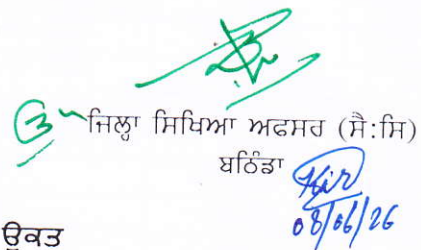 ਜਿਲ੍ਹਾ ਸਿਖਿਆ ਅਫਸਰ (ਸੈ:ਸਿ)
ਬਠਿੰਡਾ
08/06/26
ਉਕਤ